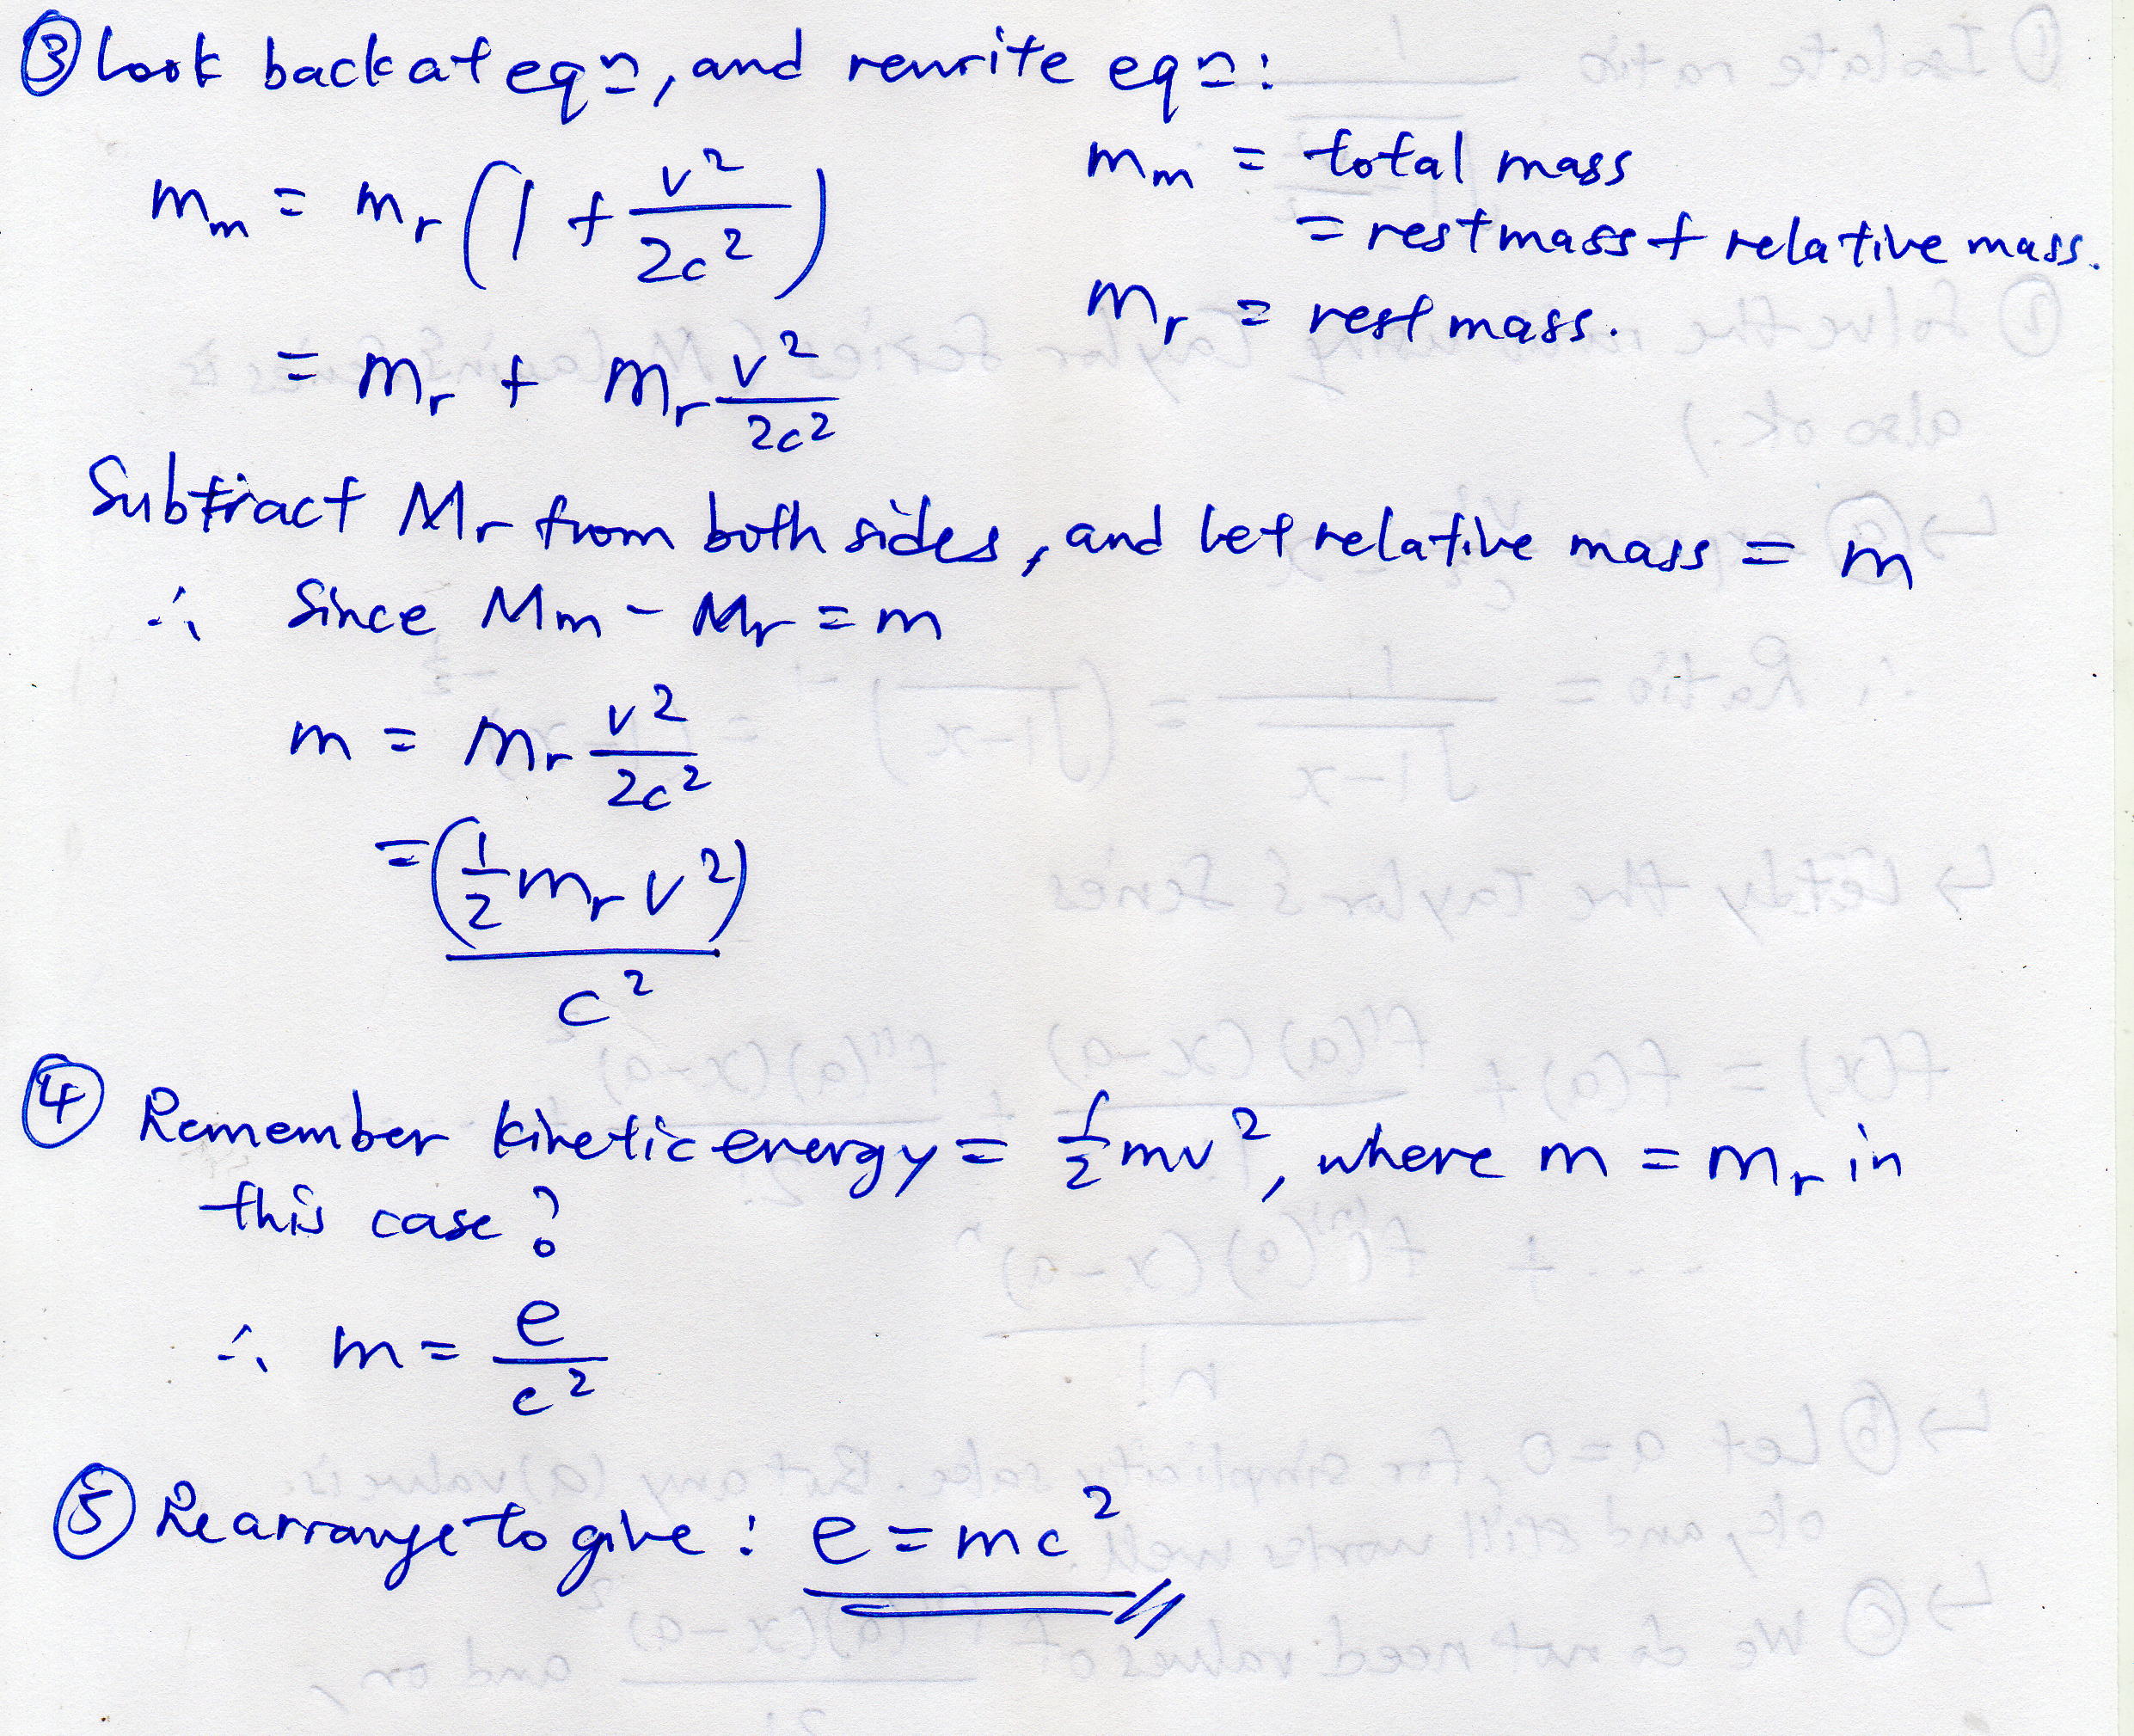 ③ Look back at eqn, and rewrite eqn:
mm = mr (1 + v²/2c²)
mm = total mass
= rest mass + relative mass.
mr = rest mass.
= mr + mr v²/2c²
Subtract Mr from both sides, and let relative mass = m
∴ Since Mm - Mr = m
m = mr v²/2c²
= (½ mr v²)/c²
④ Remember kinetic energy = ½mv², where m = mr in
this case?
∴ m = e/c²
⑤ Rearrange to give: e = mc²